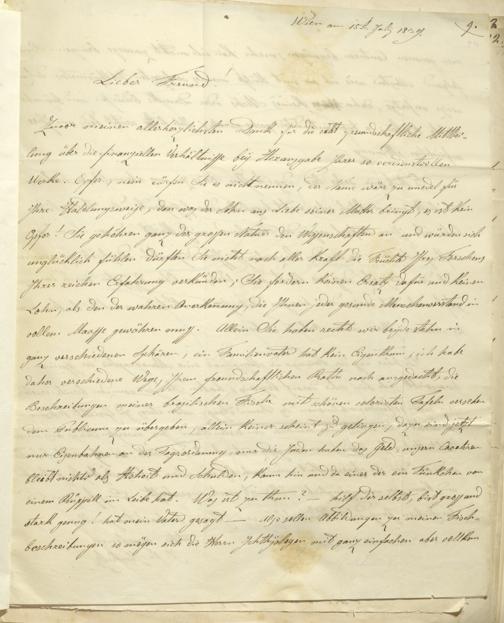 Wien am 15t. July 1839.
Lieber Freund!
Zuvor meinen allerherzlichsten Dank für die echt freundschaftliche Mitthei-
lung über die finanziellen Verhältnisse bey Herausgabe Ihrer so verdienstvollen
Werke. Opfer, nein dürfen Sie es nicht nennen, der Name wäre zu niedrig für
Ihre Handlungsweise, denn was der Sohn aus Liebe seiner Mutter bringt, es ist kein
Opfer! Sie gehören ganz der grossen Natur den Wissenschaften an und würden sich
unglücklich fühlen dürften Sie nicht nach aller Kraft die Früchte Ihres Forschens
Ihrer reichen Erfahrung verkünden; Sie fordern keinen Ersatz dafür und keinen
Lohn, als den der wahren Anerkennung, die Ihnen jeder gesunde Menschenverstand in
vollem Maasse gewähren muss. Allein Sie haben recht, wir beyde stehen in
ganz verschiedenen Sphären, ein Familienvater hat kein Eigenthum, ich habe
daher verschiedene Wege, Ihrem freundschaftlichen Rathe nach ausgedacht, die
Beschreibungen meiner brasilischen Fische mit schönen colorirten Tafeln versehen
dem Publicum zu übergeben, allein keiner scheint zu gelingen, dazu sind jetzt
nur Eisenbahnen an der Tagesordnung, und die Juden haben das Geld, unsern Cavalieren
bleibt nichts als Hoheit und Schulden, kaum hin und da einer der ein Fünkchen von
einem Rüppell im Leibe hat. Was ist zu thun? — hilf dir selbst, bist gross und
stark genug! hat mein Vater gesagt — Wo sollen Abbildungen zu meinen Fisch-
beschreibungen so mögen sich die Herrn Ichthyologen mit ganz einfachen aber vollkom